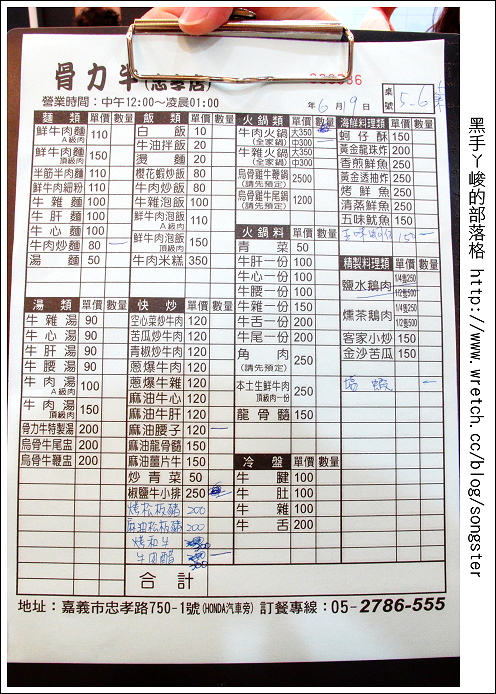 骨力牛(忠孝店)
營業時間：中午12:00～凌晨01:00
年6月9日
桌號 5-6
麵類 單價 數量
鮮牛肉麵 A級肉 110
鮮牛肉麵 頂級肉 150
半筋半肉麵 110
鮮牛肉細粉 110
牛雜麵 100
牛肝麵 100
牛心麵 100
牛肉炒麵 80
湯麵 50
飯類 單價 數量
白飯 10
牛油拌飯 20
燙麵 20
櫻花蝦炒飯 80
牛肉炒飯 80
牛雜泡飯 100
鮮牛肉泡飯 A級肉 110
鮮牛肉泡飯 頂級肉 150
牛肉米糕 350
火鍋類 單價 數量
牛肉火鍋 (全家鍋) 大350 中300
牛雜火鍋 (全家鍋) 大350 中300
烏骨雞牛鞭鍋 (請先預定) 2500
烏骨雞牛尾鍋 (請先預定) 1200
火鍋料 單價 數量
青菜 50
牛肝一份 100
牛心一份 100
牛腰一份 100
牛雜一份 200
牛舌一份 200
牛尾一份 200
角肉 (請先預定) 250
本土生鮮牛肉 頂級肉一份 250
龍骨髓 150
冷盤 單價 數量
牛腱 100
牛肚 100
牛雜 100
牛舌 200
海鮮料理類 單價 數量
蚵仔酥 150
黃金龍珠炸 200
香煎鮮魚 250
黃金透抽炸 250
烤鮮魚 250
清蒸鮮魚 250
五味魷魚 150
精製料理類 單價 數量
鹽水鵝肉 1/4隻250 1/2隻500
燻茶鵝肉 1/4隻250 1/2隻500
客家小炒 150
金沙苦瓜 150
湯類 單價 數量
牛雜湯 90
牛心湯 90
牛肝湯 90
牛腰湯 90
牛肉湯 A級肉 100
牛肉湯 頂級肉 150
骨力牛特製湯 200
烏骨牛尾盅 200
烏骨牛鞭盅 200
快炒 單價 數量
空心菜炒牛肉 120
苦瓜炒牛肉 120
青椒炒牛肉 120
蔥爆牛肉 120
蔥爆牛雜 120
麻油牛心 120
麻油牛肝 120
麻油腰子 120
麻油龍骨髓 150
麻油薑片牛 150
炒青菜 50
椒鹽牛小排 250
烤松板豬 200
麻油松板豬 200
烤和牛 300
合計
地址：嘉義市忠孝路750-1號(HONDA汽車旁) 訂餐專線：05-2786-555
黑手ㄚ峻的部落格 http://www.wretch.cc/blog/songster